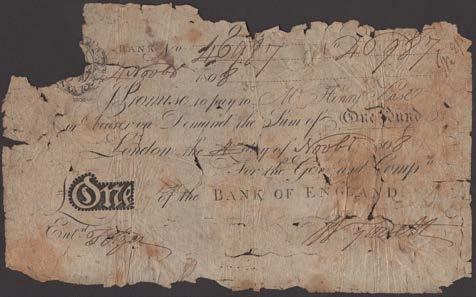 BANK No 46987 No 46987
4 Novbr 1808
I Promise to pay to Mr Henry Hase
or bearer on Demand the Sum of One Pound
London the 4 day of Novbr 1808
For the Govr and Compa
One of the BANK OF ENGLAND
Entd